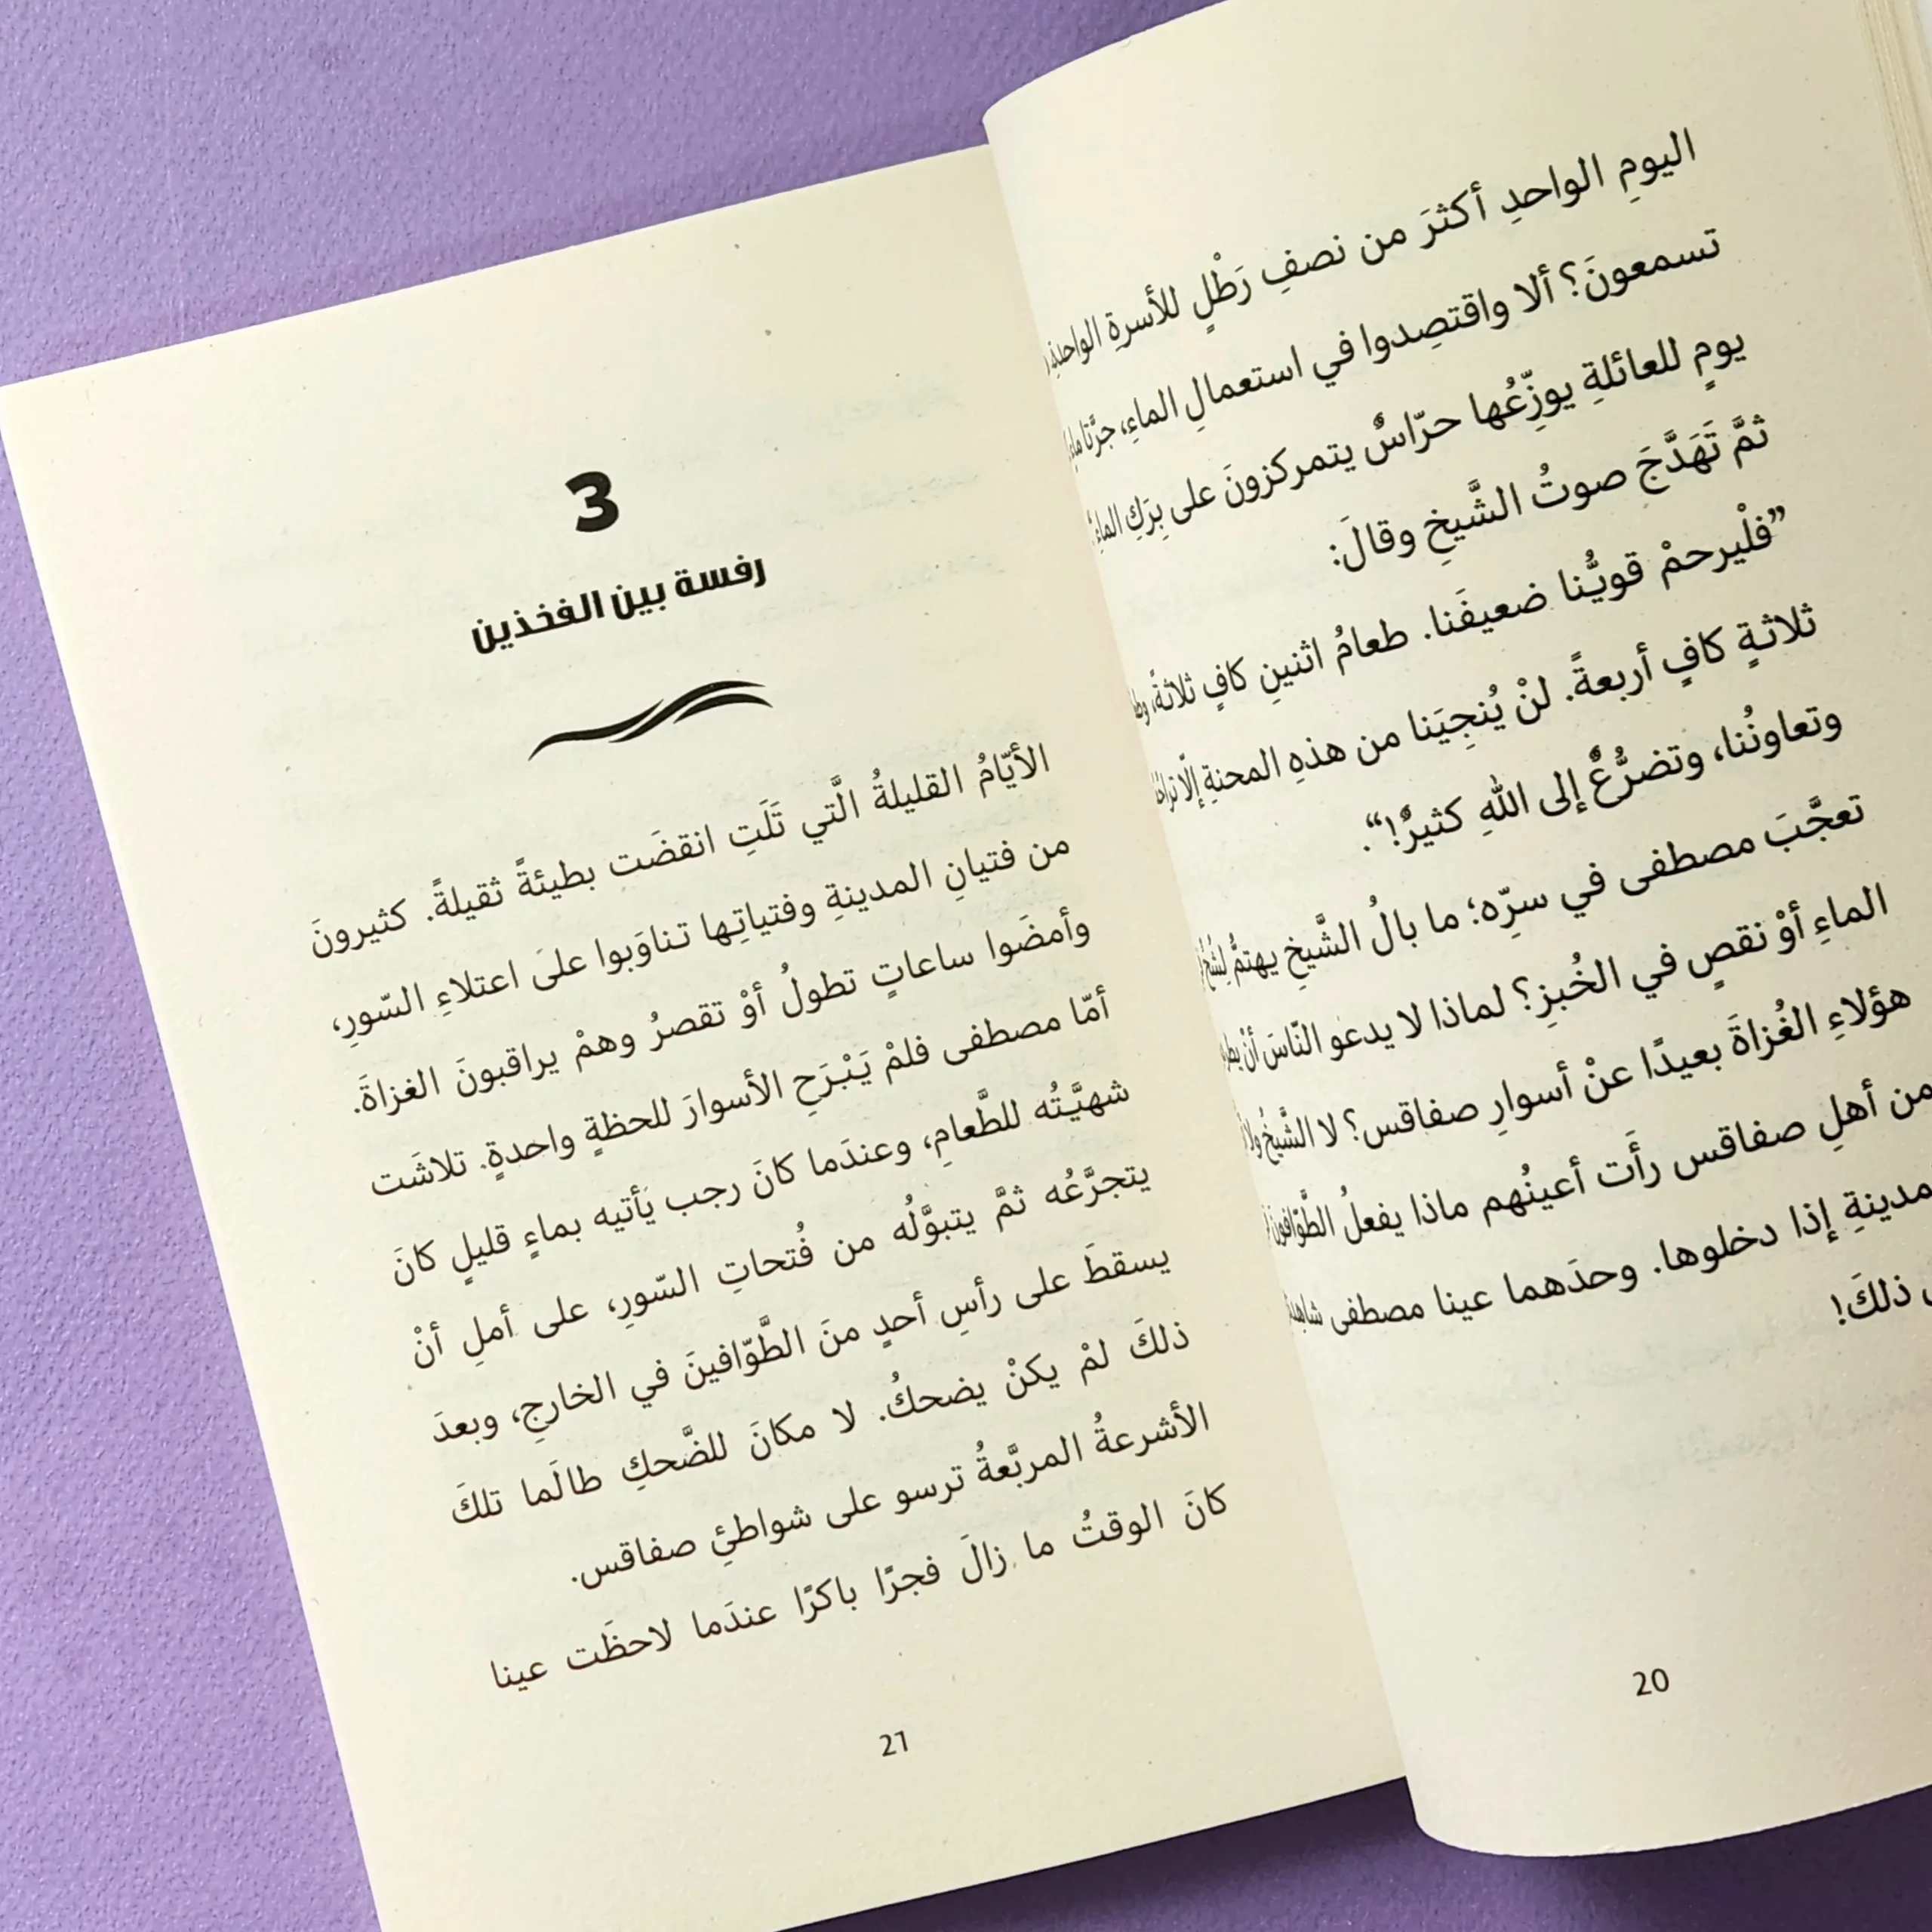 اليومِ الواحدِ أكثرَ من نصفِ رَطْلٍ للأسرةِ الواحدةِ
تسمعونَ؟ ألا واقتصِدوا في استعمالِ الماءِ، جرَّتا
يومٍ للعائلةِ يوزِّعُها حرّاسٌ يتمركزونَ على بِرَكِ الماءِ“
ثمَّ تَهَدَّجَ صوتُ الشَّيخِ وقالَ:
”فلْيرحمْ قويُّنا ضعيفَنا. طعامُ اثنينِ كافٍ ثلاثةً،
ثلاثةٍ كافٍ أربعةً. لنْ يُنجِيَنا من هذهِ المحنةِ إلّا
وتعاونُنا، وتضرُّعٌ إلى اللهِ كثيرٌ!“.
تعجَّبَ مصطفى في سرِّه؛ ما بالُ الشَّيخِ يهتمُّ
الماءِ أوْ نقصٍ في الخُبزِ؟ لماذا لا يدعو النّاسَ أنْ
هؤلاءِ الغُزاةَ بعيدًا عنْ أسوارِ صفاقس؟ لا الشَّيخُ
من أهلِ صفاقس رأَت أعينُهم ماذا يفعلُ الطَّوّافونَ
مدينةِ إذا دخلوها. وحدَهما عينا مصطفى
ذلكَ!
20
3
رفسة بين الفخذين
الأيّامُ القليلةُ الَّتي تَلَتِ انقضَت بطيئةً ثقيلةً. كثيرونَ
من فتيانِ المدينةِ وفتياتِها تناوَبوا علىَ اعتلاءِ السّورِ،
وأمضَوا ساعاتٍ تطولُ أوْ تقصرُ وهمْ يراقبونَ الغزاةَ.
أمّا مصطفى فلمْ يَبْرَحِ الأسوارَ للحظةٍ واحدةٍ. تلاشَت
شهيَّتُه للطَّعامِ، وعندَما كانَ رجب يأتيه بماءٍ قليلٍ كانَ
يتجرَّعُه ثمَّ يتبوَّلُه من فُتحاتِ السّورِ، على أملِ أنْ
يسقطَ على رأسِ أحدٍ منَ الطَّوّافينَ في الخارجِ، وبعدَ
ذلكَ لمْ يكنْ يضحكُ. لا مكانَ للضَّحكِ طالَما تلكَ
الأشرعةُ المربَّعةُ ترسو على شواطئِ صفاقس.
كانَ الوقتُ ما زالَ فجرًا باكرًا عندَما لاحظَت عينا
21